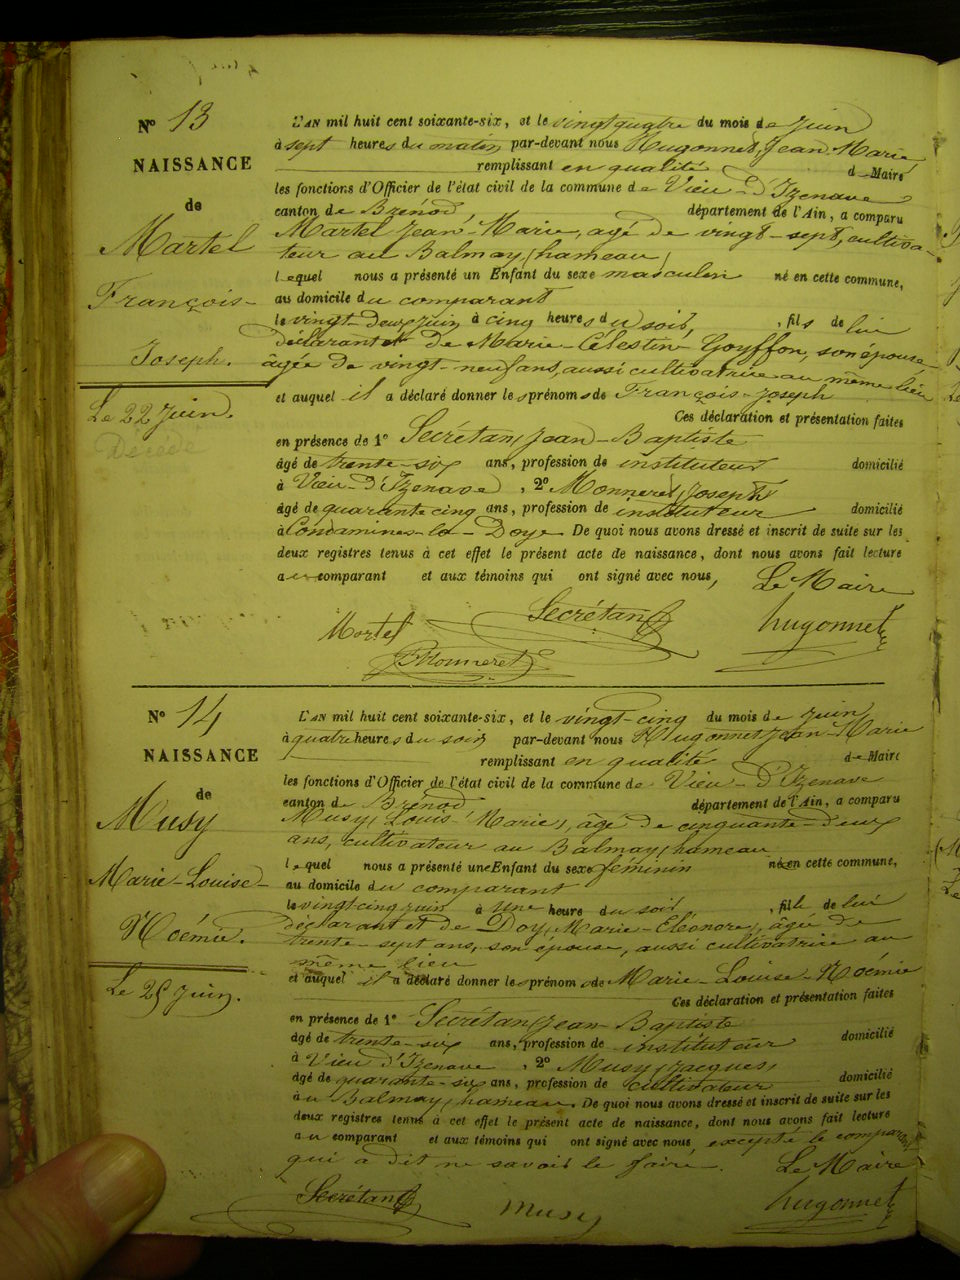 N° 13
NAISSANCE
de
Martel
François-
Joseph.
Le 22 juin.
Décédé
L'AN mil huit cent soixante-six, et le vingt quatre du mois de juin
à sept heures du matin par-devant nous Hugonnet, Jean Marie
remplissant en qualité de Maire
les fonctions d'Officier de l'état civil de la commune de Vieu-d'Izenave
canton de Brénod département de l'Ain, a comparu
Martel Jean-Marie, agé de vingt-sept, cultiva-
teur au Balmay (hameau)
lequel nous a présenté un Enfant du sexe masculin né en cette commune,
au domicile du comparant
le vingt-deux juin à cinq heures du soir, , fils de lui
déclarant et de Marie-Célestine Gouffon, son épouse
âgée de vingt-neuf ans, aussi cultivatrice au même lieu
et auquel il a déclaré donner les prénoms de François-Joseph
Ces déclaration et présentation faites
en présence de 1° Secrétan, Jean-Baptiste
âgé de trente-six ans, profession de instituteur domicilié
à Vieu-d'Izenave , 2° Monneret, Joseph
âgé de quarante cinq ans, profession de instituteur domicilié
à Condamines-la-Doye. De quoi nous avons dressé et inscrit de suite sur les
deux registres tenus à cet effet le présent acte de naissance, dont nous avons fait lecture
au comparant et aux témoins qui ont signé avec nous, Le Maire
Martel Secrétan hugonnet
Monneret
N° 14
NAISSANCE
de
Musy
Marie-Louise-
Noémie.
Le 25 juin.
L'AN mil huit cent soixante-six, et le vingt-cinq du mois de juin
à quatre heures du soir par-devant nous Hugonnet Jean-Marie
remplissant en qualité de Maire
les fonctions d'Officier de l'état civil de la commune de Vieu-d'Izenave
canton de Brénod département de l'Ain, a comparu
Musy, Louis-Marie, âgé de cinquante-deux
ans, cultivateur au Balmay, hameau
lequel nous a présenté un Enfant du sexe féminin né en cette commune,
au domicile du comparant
le vingt cinq juin à une heure du soir , fille de lui
déclarant et de Doy, Marie-Eléonore, âgée de
trente-sept ans, son épouse, aussi cultivatrice au
même lieu
et auquel il a déclaré donner les prénoms de Marie-Louise-Noémie
Ces déclaration et présentation faites
en présence de 1° Secrétan, Jean-Baptiste
âgé de trente-six ans, profession de instituteur domicilié
à Vieu d'Izenave , 2° Musy, Jacques,
âgé de quarante-six ans, profession de cultivateur domicilié
au Balmay, hameau. De quoi nous avons dressé et inscrit de suite sur les
deux registres tenus à cet effet le présent acte de naissance, dont nous avons fait lecture
au comparant et aux témoins qui ont signé avec nous excepté le comparant
qui a dit ne savoir le faire. Le Maire
Secrétan musy hugonnet